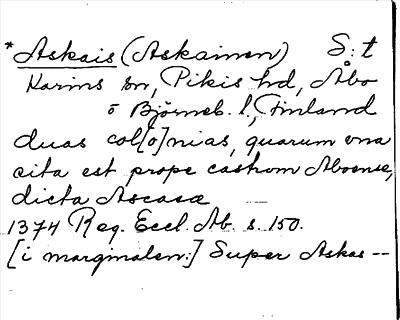 *Askais (Askainen) S:t
Karins sn, Pikis hd, Åbo
o Björneb. l., Finland
duas col[o]nias, quarum una
sita est prope castrum Aboense,
dicta Ascasa
1374 Reg. Eccl. Ab. s. 150.
[i marginalen:] Super Askas --